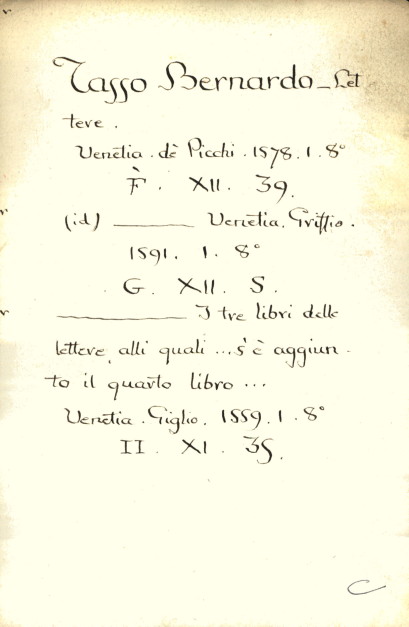 Tasso Bernardo_Let
tere.
Venetia. dè Picchi. 1578. 1. 8°
F. XII. 39.
(id) ______ Venetia. Griffio.
1591. 1. 8°
G. XII. S.
____________ I tre libri delle
lettere, alli quali ... s'è aggiun-
to il quarto libro ...
Venetia. Giglio. 1559. 1. 8°
II. XI. 35.
C